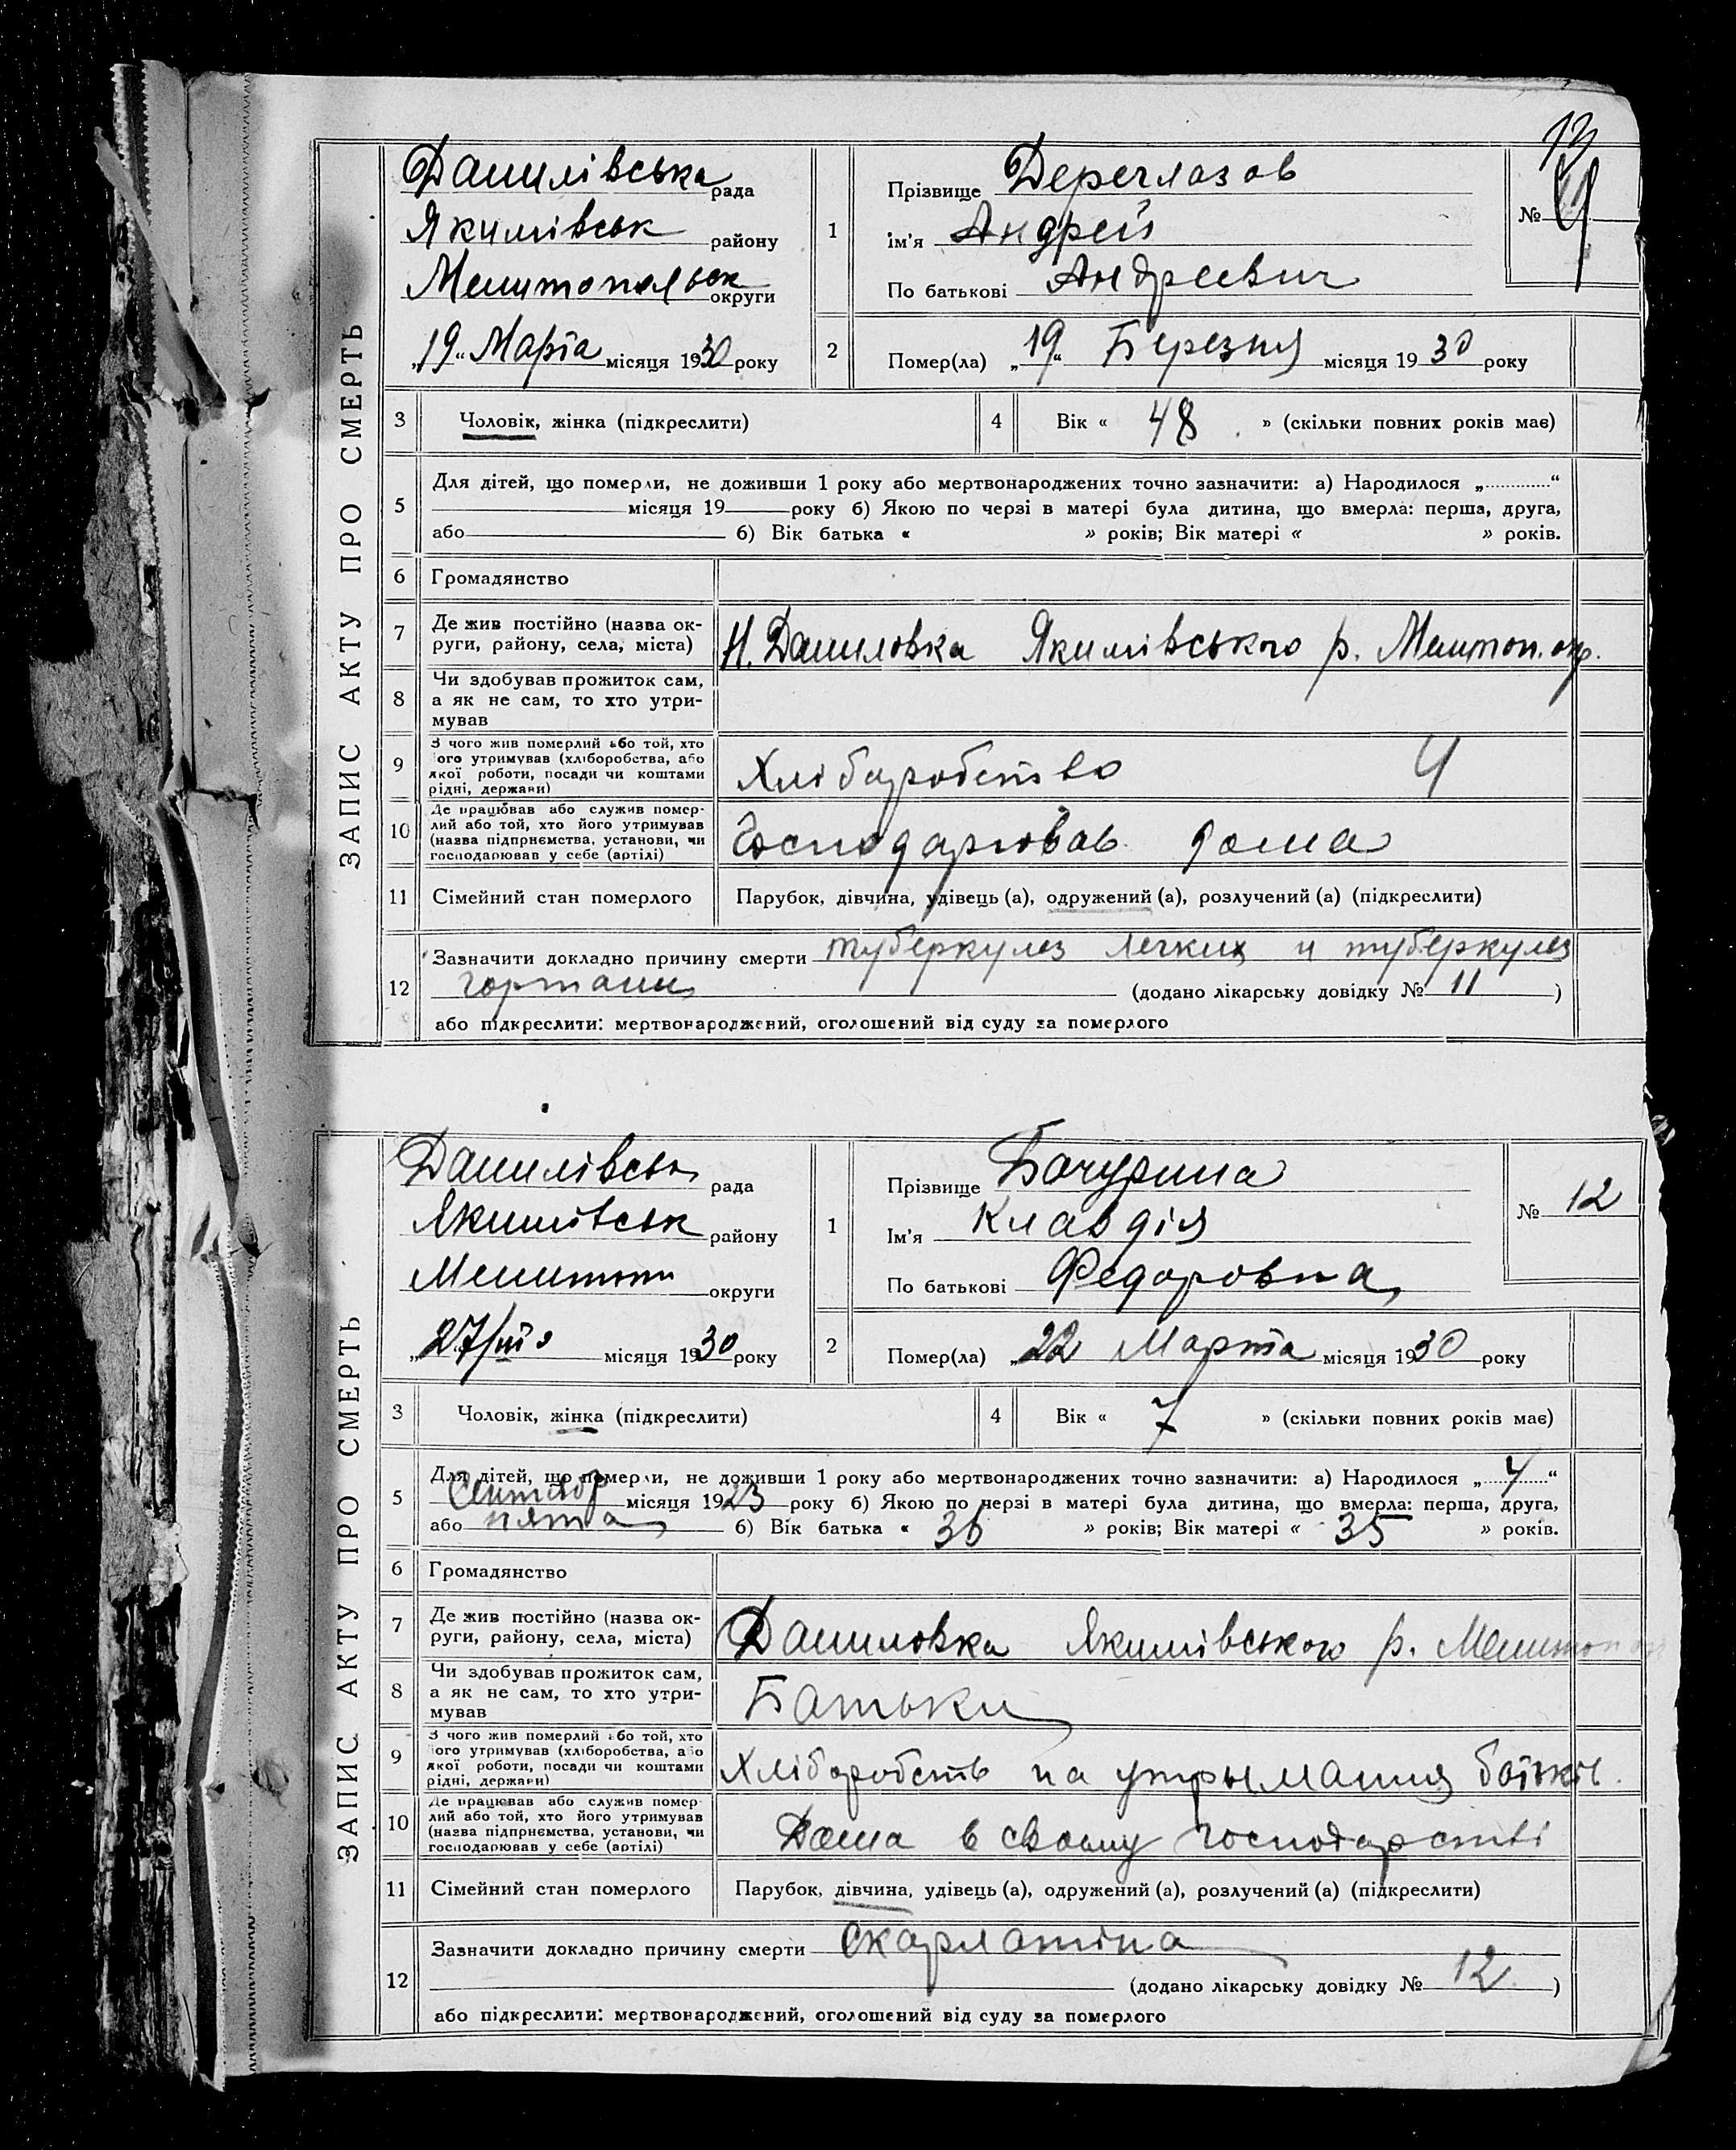 ЗАПИС АКТУ ПРО СМЕРТЬ
Данилівська рада
Якимівськ району
Мелитопольськ округи
„19“ Марта місяця 1930 року
1
Прізвище Деречлазов
ім'я Андрей
По батькові Андреевич
№
2
Помер(ла) „19“ Березня місяця 1930 року
3 Чоловік, жінка (підкреслити)
4 Вік « 48 » (скільки повних років має)
5 Для дітей, що померли, не доживши 1 року або мертвонароджених точно зазначити: а) Народилося „............“
місяця 19 року б) Якою по черзі в матері була дитина, що вмерла: перша, друга,
або б) Вік батька « » років; Вік матері « » років.
6 Громадянство
7 Де жив постійно (назва ок-
руги, району, села, міста)
Н. Даниловка Якимівського р. Мелитоп. окр.
8 Чи здобував прожиток сам,
а як не сам, то хто утри-
мував
9 З чого жив померлий або той, хто
ого утримував (хліборобства, або
якої роботи, посади чи коштами
рідні, держави)
Хліборобство Ч
10 Де працював або служив помер-
лий або той, хто його утримував
(назва підприємства, установи, чи
господарював у себе (артілі)
Господарював дома
11 Сімейний стан померлого
Парубок, дівчина, удівець (а), одружений (а), розлучений (а) (підкреслити)
12 Зазначити докладно причину смерти туберкулез легких и туберкулез
гортани (додано лікарську довідку № 11 )
або підкреслити: мертвонароджений, оголошений від суду за померлого
ЗАПИС АКТУ ПРО СМЕРТЬ
Данилівськ рада
Якимівськ району
Мелитоп округи
„27/III місяця 1930 року
1
Прізвище Бочурина
Ім'я Клавдія
По батькові Федоровна
№ 12
2
Помер(ла) „22 Марта місяця 1930 року
3 Чоловік, жінка (підкреслити)
4 Вік « 7 » (скільки повних років має)
5 Для дітей, що померли, не доживши 1 року або мертвонароджених точно зазначити: а) Народилося „ 4 “
Сентябр місяця 1923 року б) Якою по черзі в матері була дитина, що вмерла: перша, друга,
або пята б) Вік батька « 36 » років; Вік матері « 35 » років.
6 Громадянство
7 Де жив постійно (назва ок-
руги, району, села, міста)
Даниловка Якимівського р. Мелитопол
8 Чи здобував прожиток сам,
а як не сам, то хто утри-
мував
Батьки
9 З чого жив померлий або той, хто
ого утримував (хліборобства, або
якої роботи, посади чи коштами
рідні, держави)
Хліборобств на утрымання батьків.
10 Де працював або служив помер-
лий або той, хто його утримував
(назва підприємства, установи, чи
господарював у себе (артілі)
Дома в своему господарстві
11 Сімейний стан померлого
Парубок, дівчина, удівець (а), одружений (а), розлучений (а) (підкреслити)
12 Зазначити докладно причину смерти Скарлатіна
(додано лікарську довідку № 12 )
або підкреслити: мертвонароджений, оголошений від суду за померлого